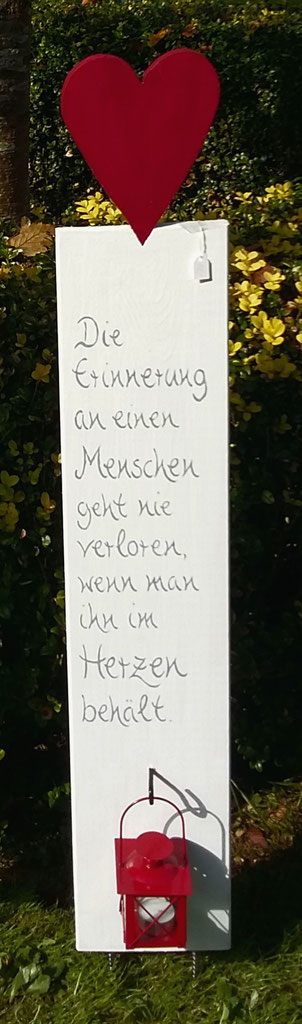 Die
Erinnerung
an einen
Menschen
geht nie
verloren,
wenn man
ihn im
Herzen
behält.